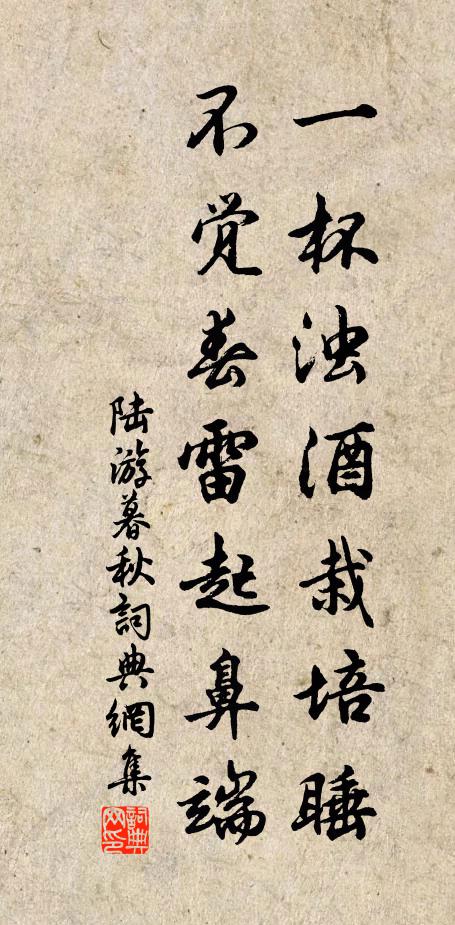 一杯浊酒栽培睡
不觉春雷起鼻端
陆游暮秋詞典網集
詞典網印